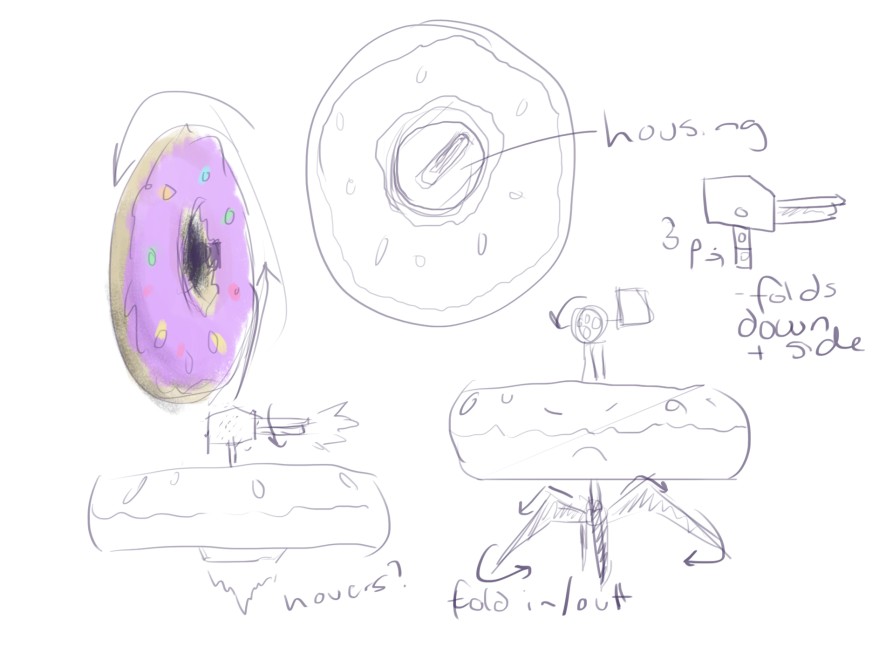 housing
3 pin
- folds
down
+ side
hovers?
fold in/out